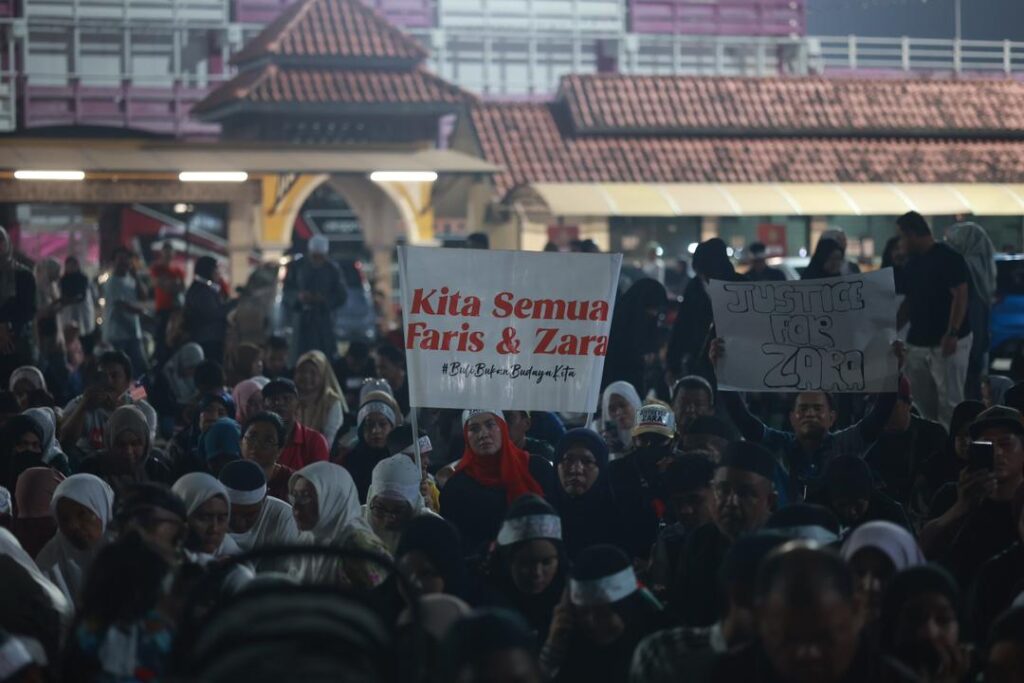 Kita Semua
Faris & Zara
#BuliBukanBudayaKita
JUSTICE
FOR
ZARA